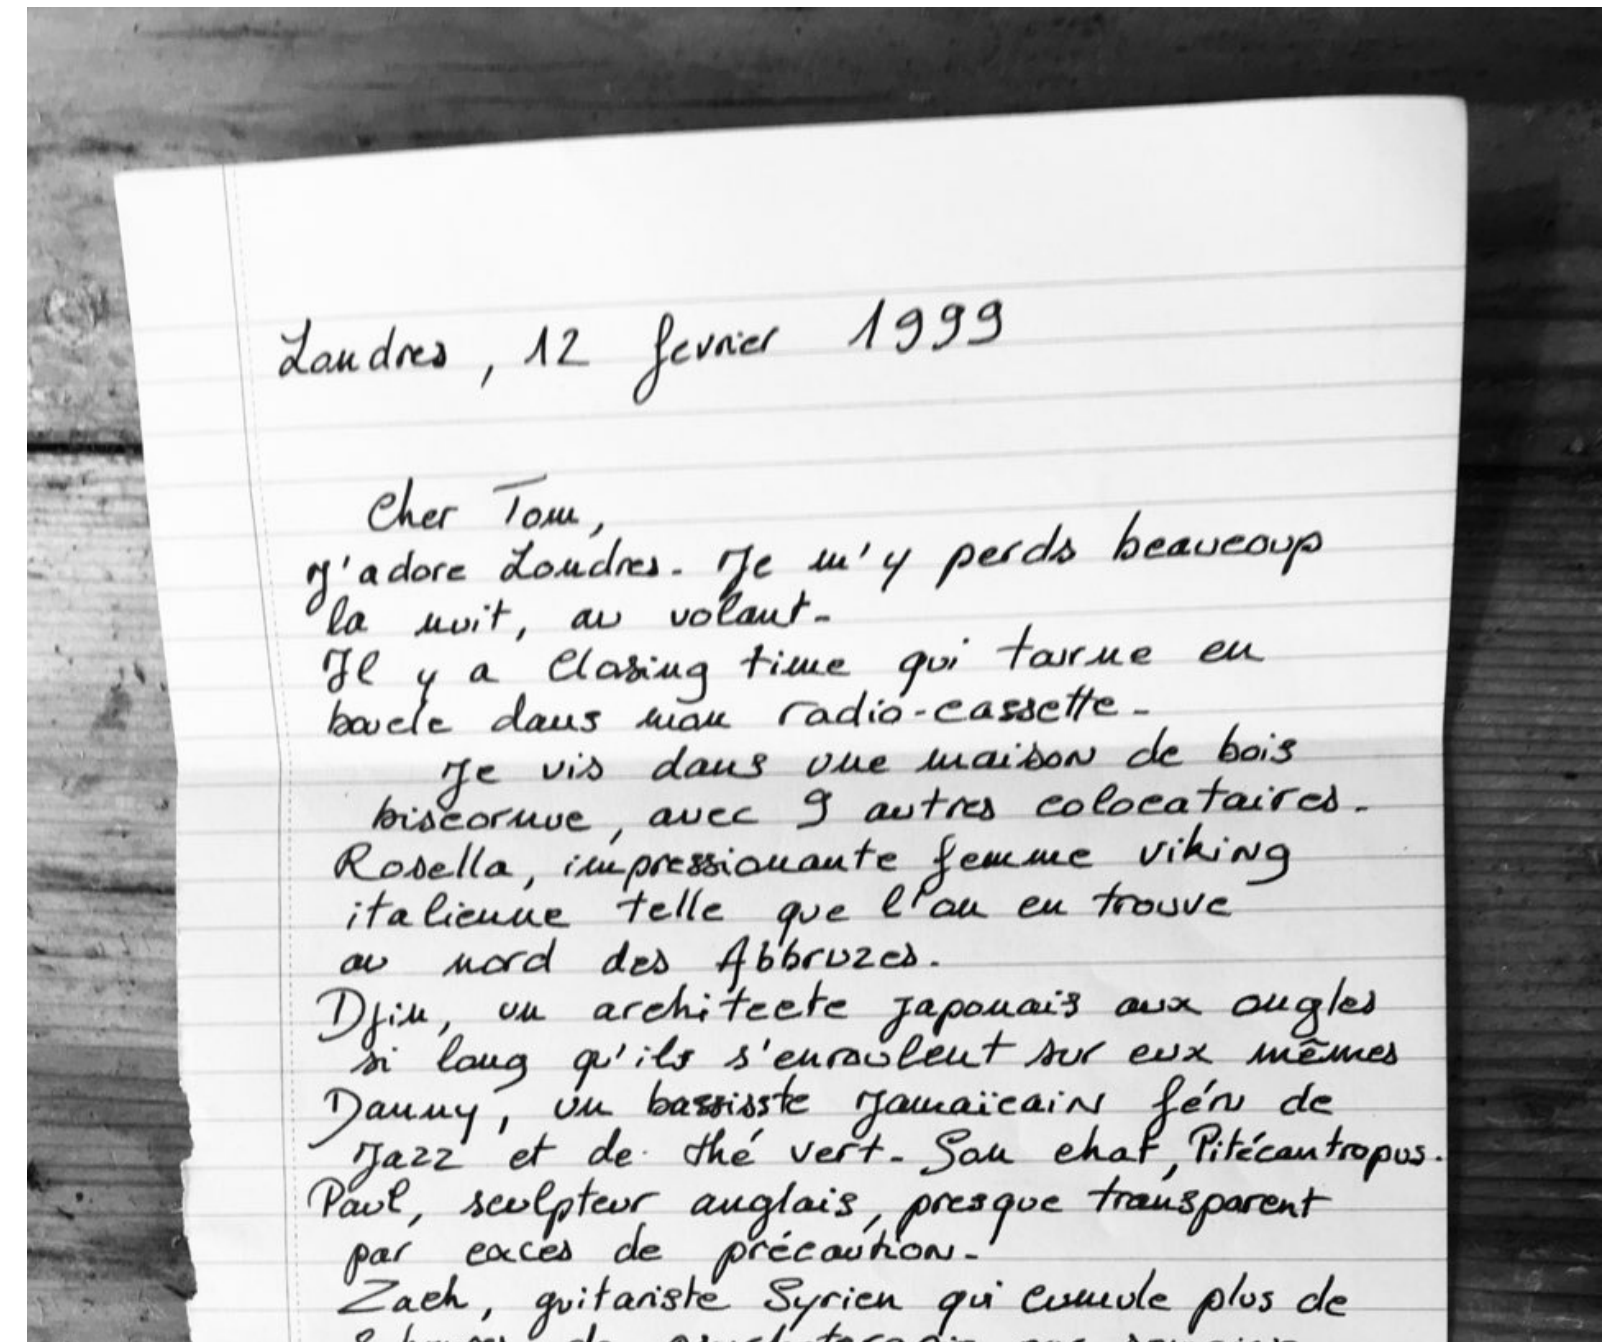 Londres, 12 fevrier 1999
Cher Tom,
J'adore Londres. Je m'y perds beaucoup
la nuit, au volant.
Il y a Closing time qui tourne en
boucle dans mon radio-cassette.
Je vis dans une maison de bois
biscornue, avec 9 autres colocataires.
Rosella, impressionante femme viking
italienne telle que l'on en trouve
au nord des Abbruzes.
Djin, un architecte japonais aux ongles
si long qu'ils s'enroulent sur eux mêmes
Danny, un bassisste Jamaïcain féru de
Jazz et de thé vert. Son chat, Pitécantropus.
Paul, sculpteur anglais, presque transparent
par exces de précaution.
Zach, guitariste Syrien qui cumule plus de